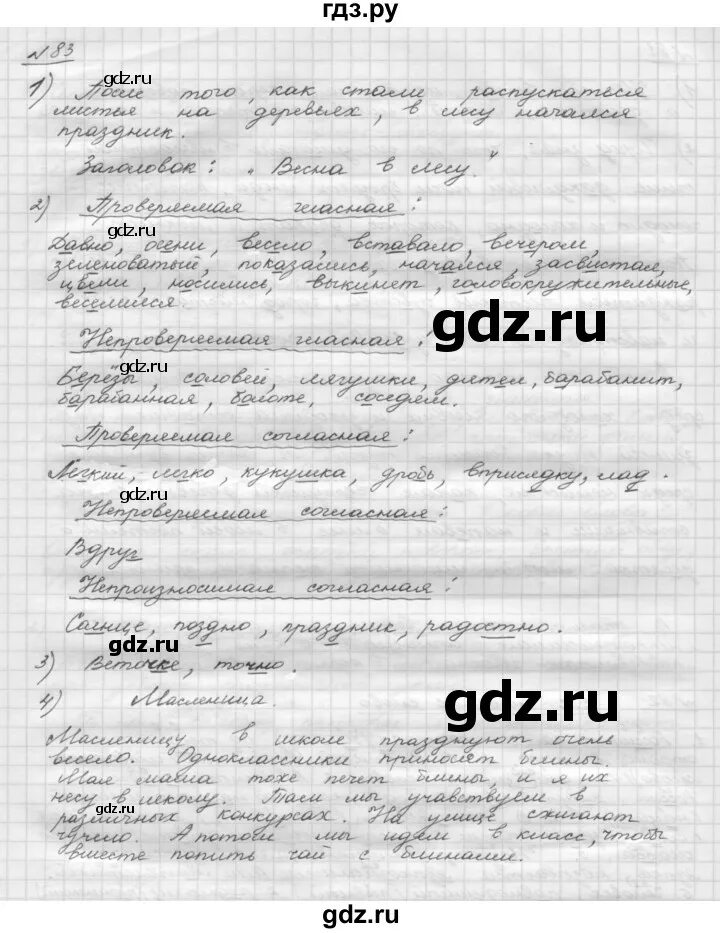 гдз.ру
№83
gdz.ru
1) После того, как стали распускаться
листья на деревьях, в лесу начался
праздник.
gdz.ru
Заголовок: „Весна в лесу."
2) Проверяемая гласная:
gdz.ru
Давно, осени, весело, вставало, вечером,
зеленоватый, показались, начался, засвистал,
цвели, носились, выкинет, головокружительные,
веселился.
gdz.ru
Непроверяемая гласная:
gdz.ru
Берёзы, соловей, лягушки, дятел, барабанит,
барабанная, болоте, соседям.
gdz.ru
Проверяемая согласная:
Лёгкий, легко, кукушка, дробь, вприсядку, лад.
gdz.ru
Непроверяемая согласная:
Вдруг
gdz.ru
Непроизносимая согласная:
Солнце, поздно, праздник, радостно.
gdz.ru
3) Веточке, точно.
4) Масленица.
gdz.ru
gdz.ru
Масленицу в школе празднуют очень
весело. Одноклассники приносят блины.
Моя мама тоже печет блины, и я их
несу в школу. Там мы учавствуем в
различных конкурсах. На улице сжигают
gdz.ru
чучело. А потом мы идем в класс, чтобы
вместе попить чай с блинами.
gdz.ru
gdz.ru